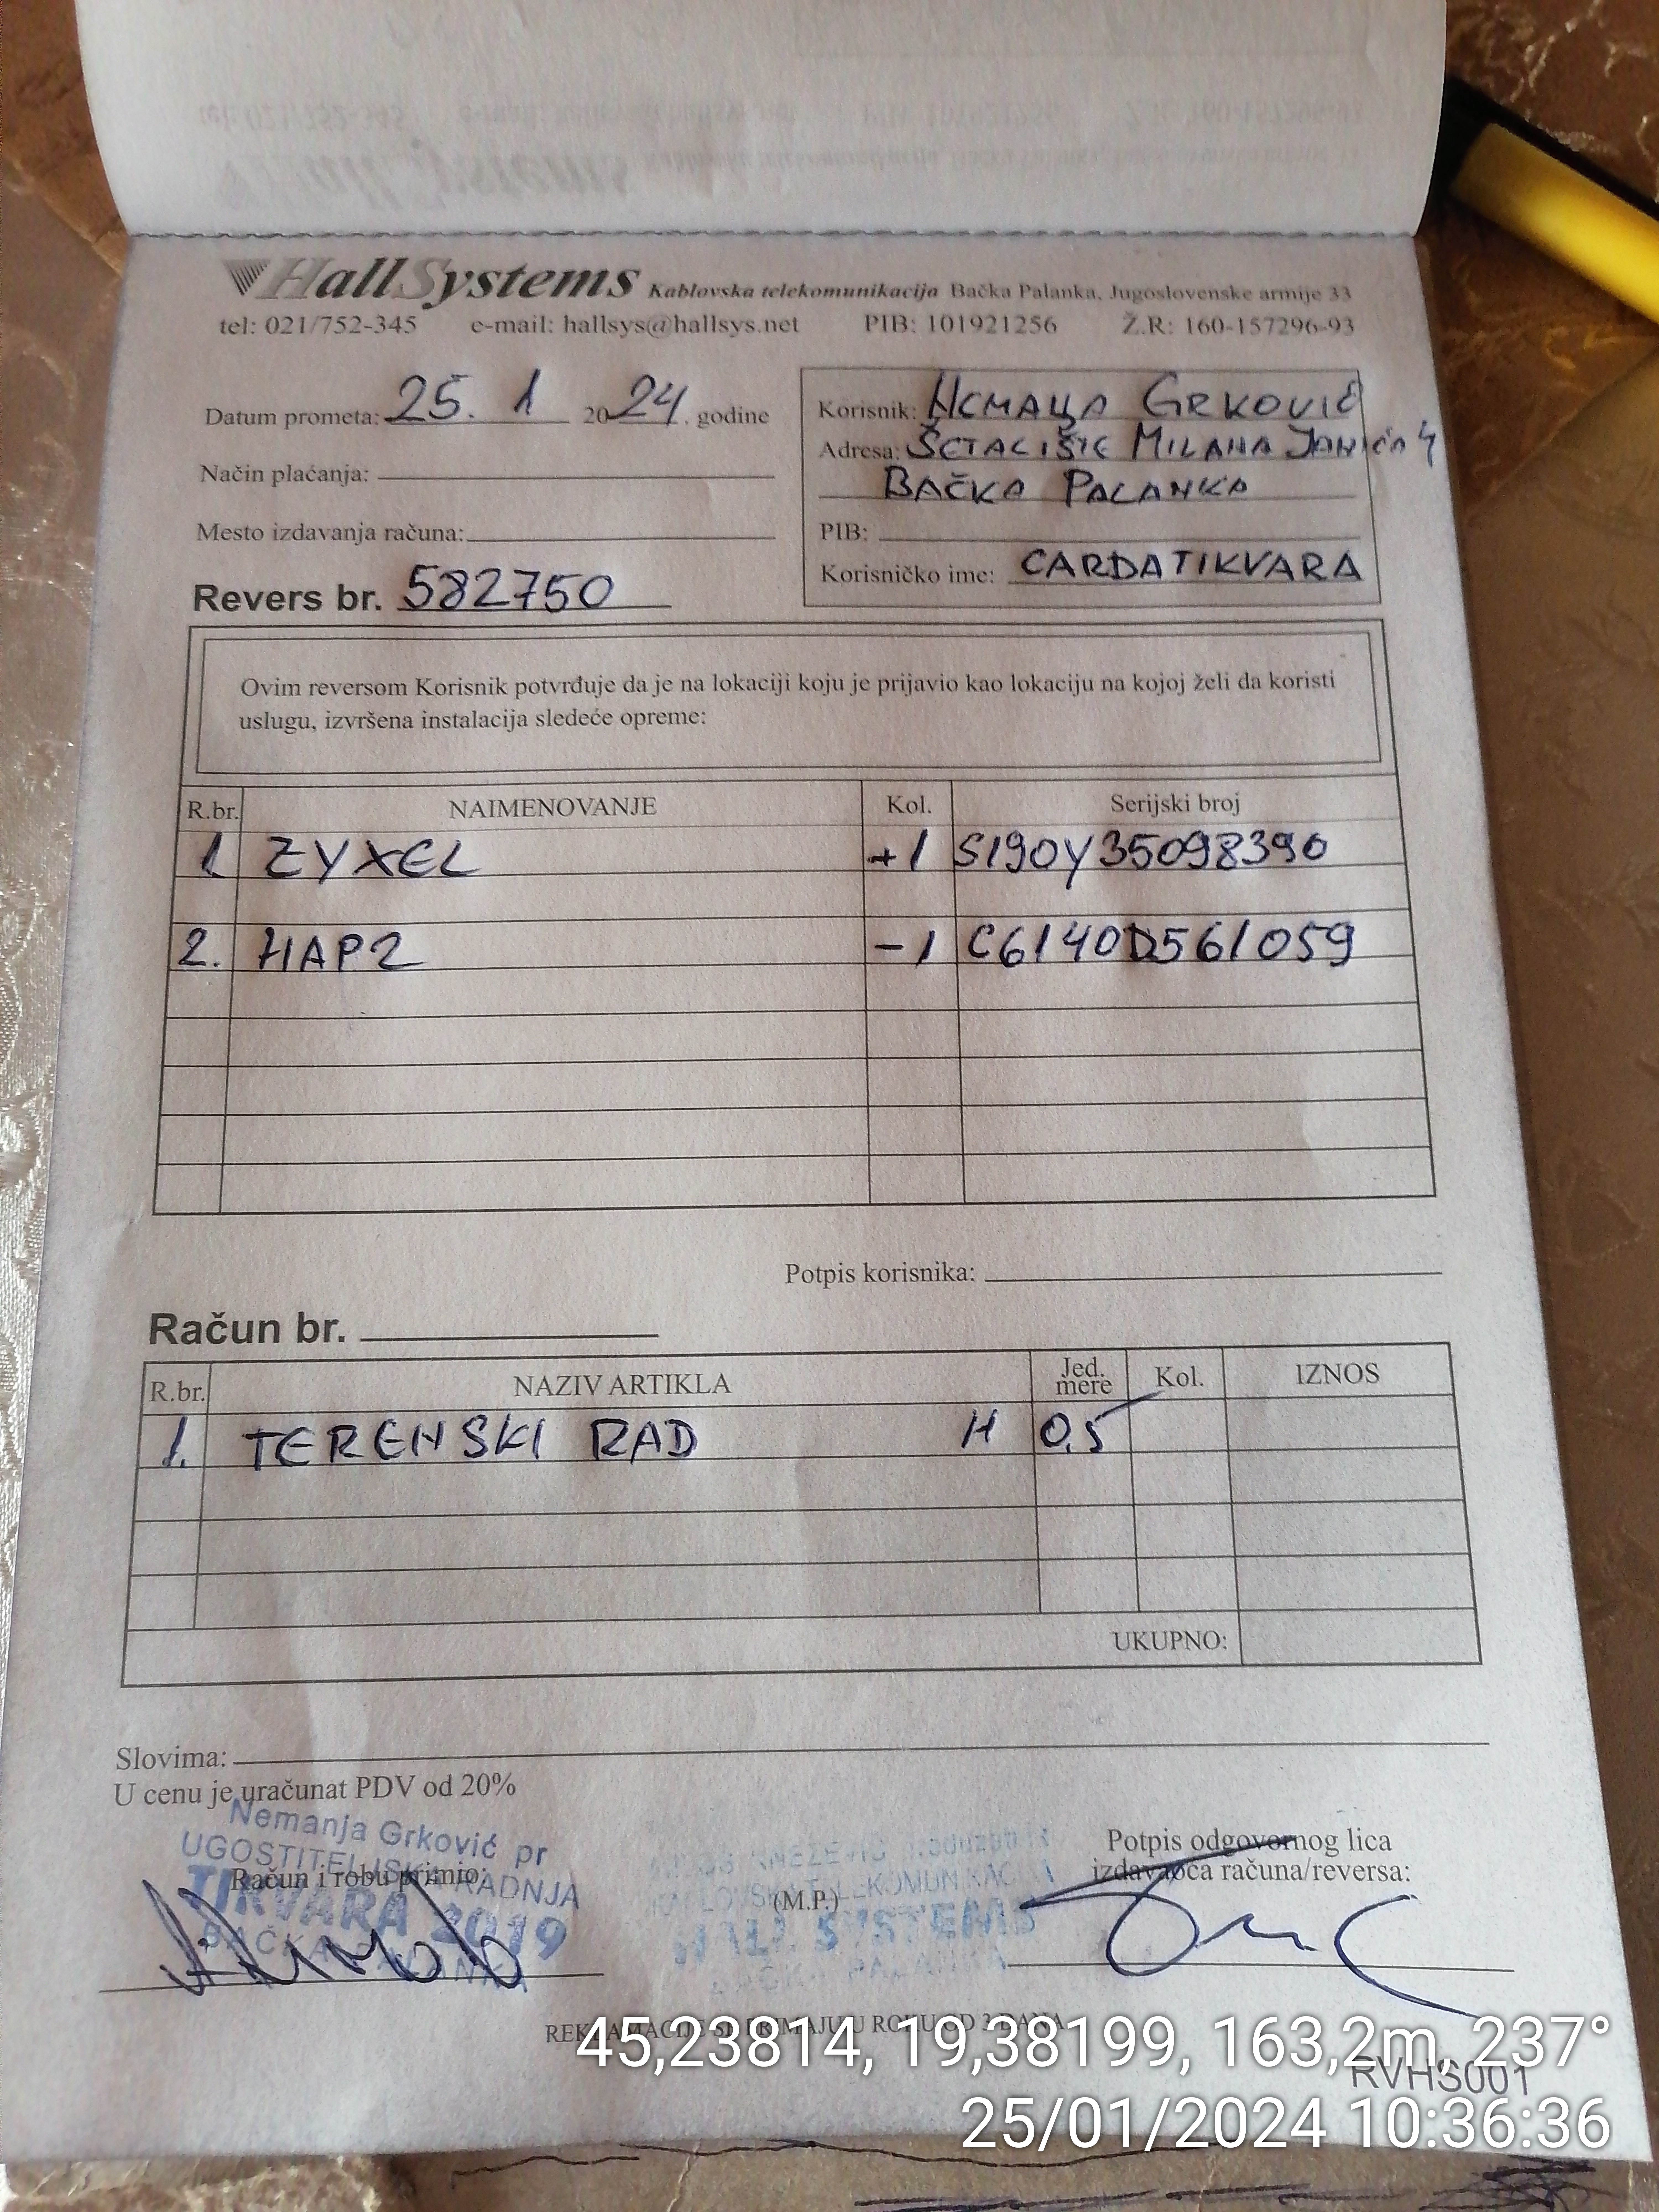 HallSystems Kablovska telekomunikacija Bačka Palanka, Jugoslovenske armije 33
tel: 021/752-345 e-mail: hallsys@hallsys.net PIB: 101921256 Ž.R: 160-157296-93
Datum prometa: 25. 1 2024. godine
Način plaćanja:
Mesto izdavanja računa:
Revers br. 582750
Korisnik: NEMAЊA GRKOVIĆ
Adresa: ŠETALIŠTE MILANA JANIĆA 4
BAČKA PALANKA
PIB:
Korisničko ime: CARDATIKVARA
Ovim reversom Korisnik potvrđuje da je na lokaciji koju je prijavio kao lokaciju na kojoj želi da koristi
uslugu, izvršena instalacija sledeće opreme:
R.br. NAIMENOVANJE Kol. Serijski broj
1 ZYXEL +1 S190Y35098390
2. HAP2 -1 C6140D561059
Potpis korisnika:
Račun br.
R.br. NAZIV ARTIKLA Jed. mere Kol. IZNOS
1. TERENSKI RAD H 0,5
UKUPNO:
Slovima:
U cenu je uračunat PDV od 20%
Nemanja Grković pr
UGOSTITELJSKA RADNJA
TIKVARA 2019
BAČKA PALANKA
Račun i robu primio:
(M.P.)
KABLOVSKA TELEKOMUNIKACIJA
HALL SYSTEMS
BAČKA PALANKA
Potpis odgovornog lica
izdavaoca računa/reversa:
REKLAMACIJE SE PRIMAJU U ROKU OD 3 DANA
RVHS001
45,23814, 19,38199, 163,2m, 237°
25/01/2024 10:36:36